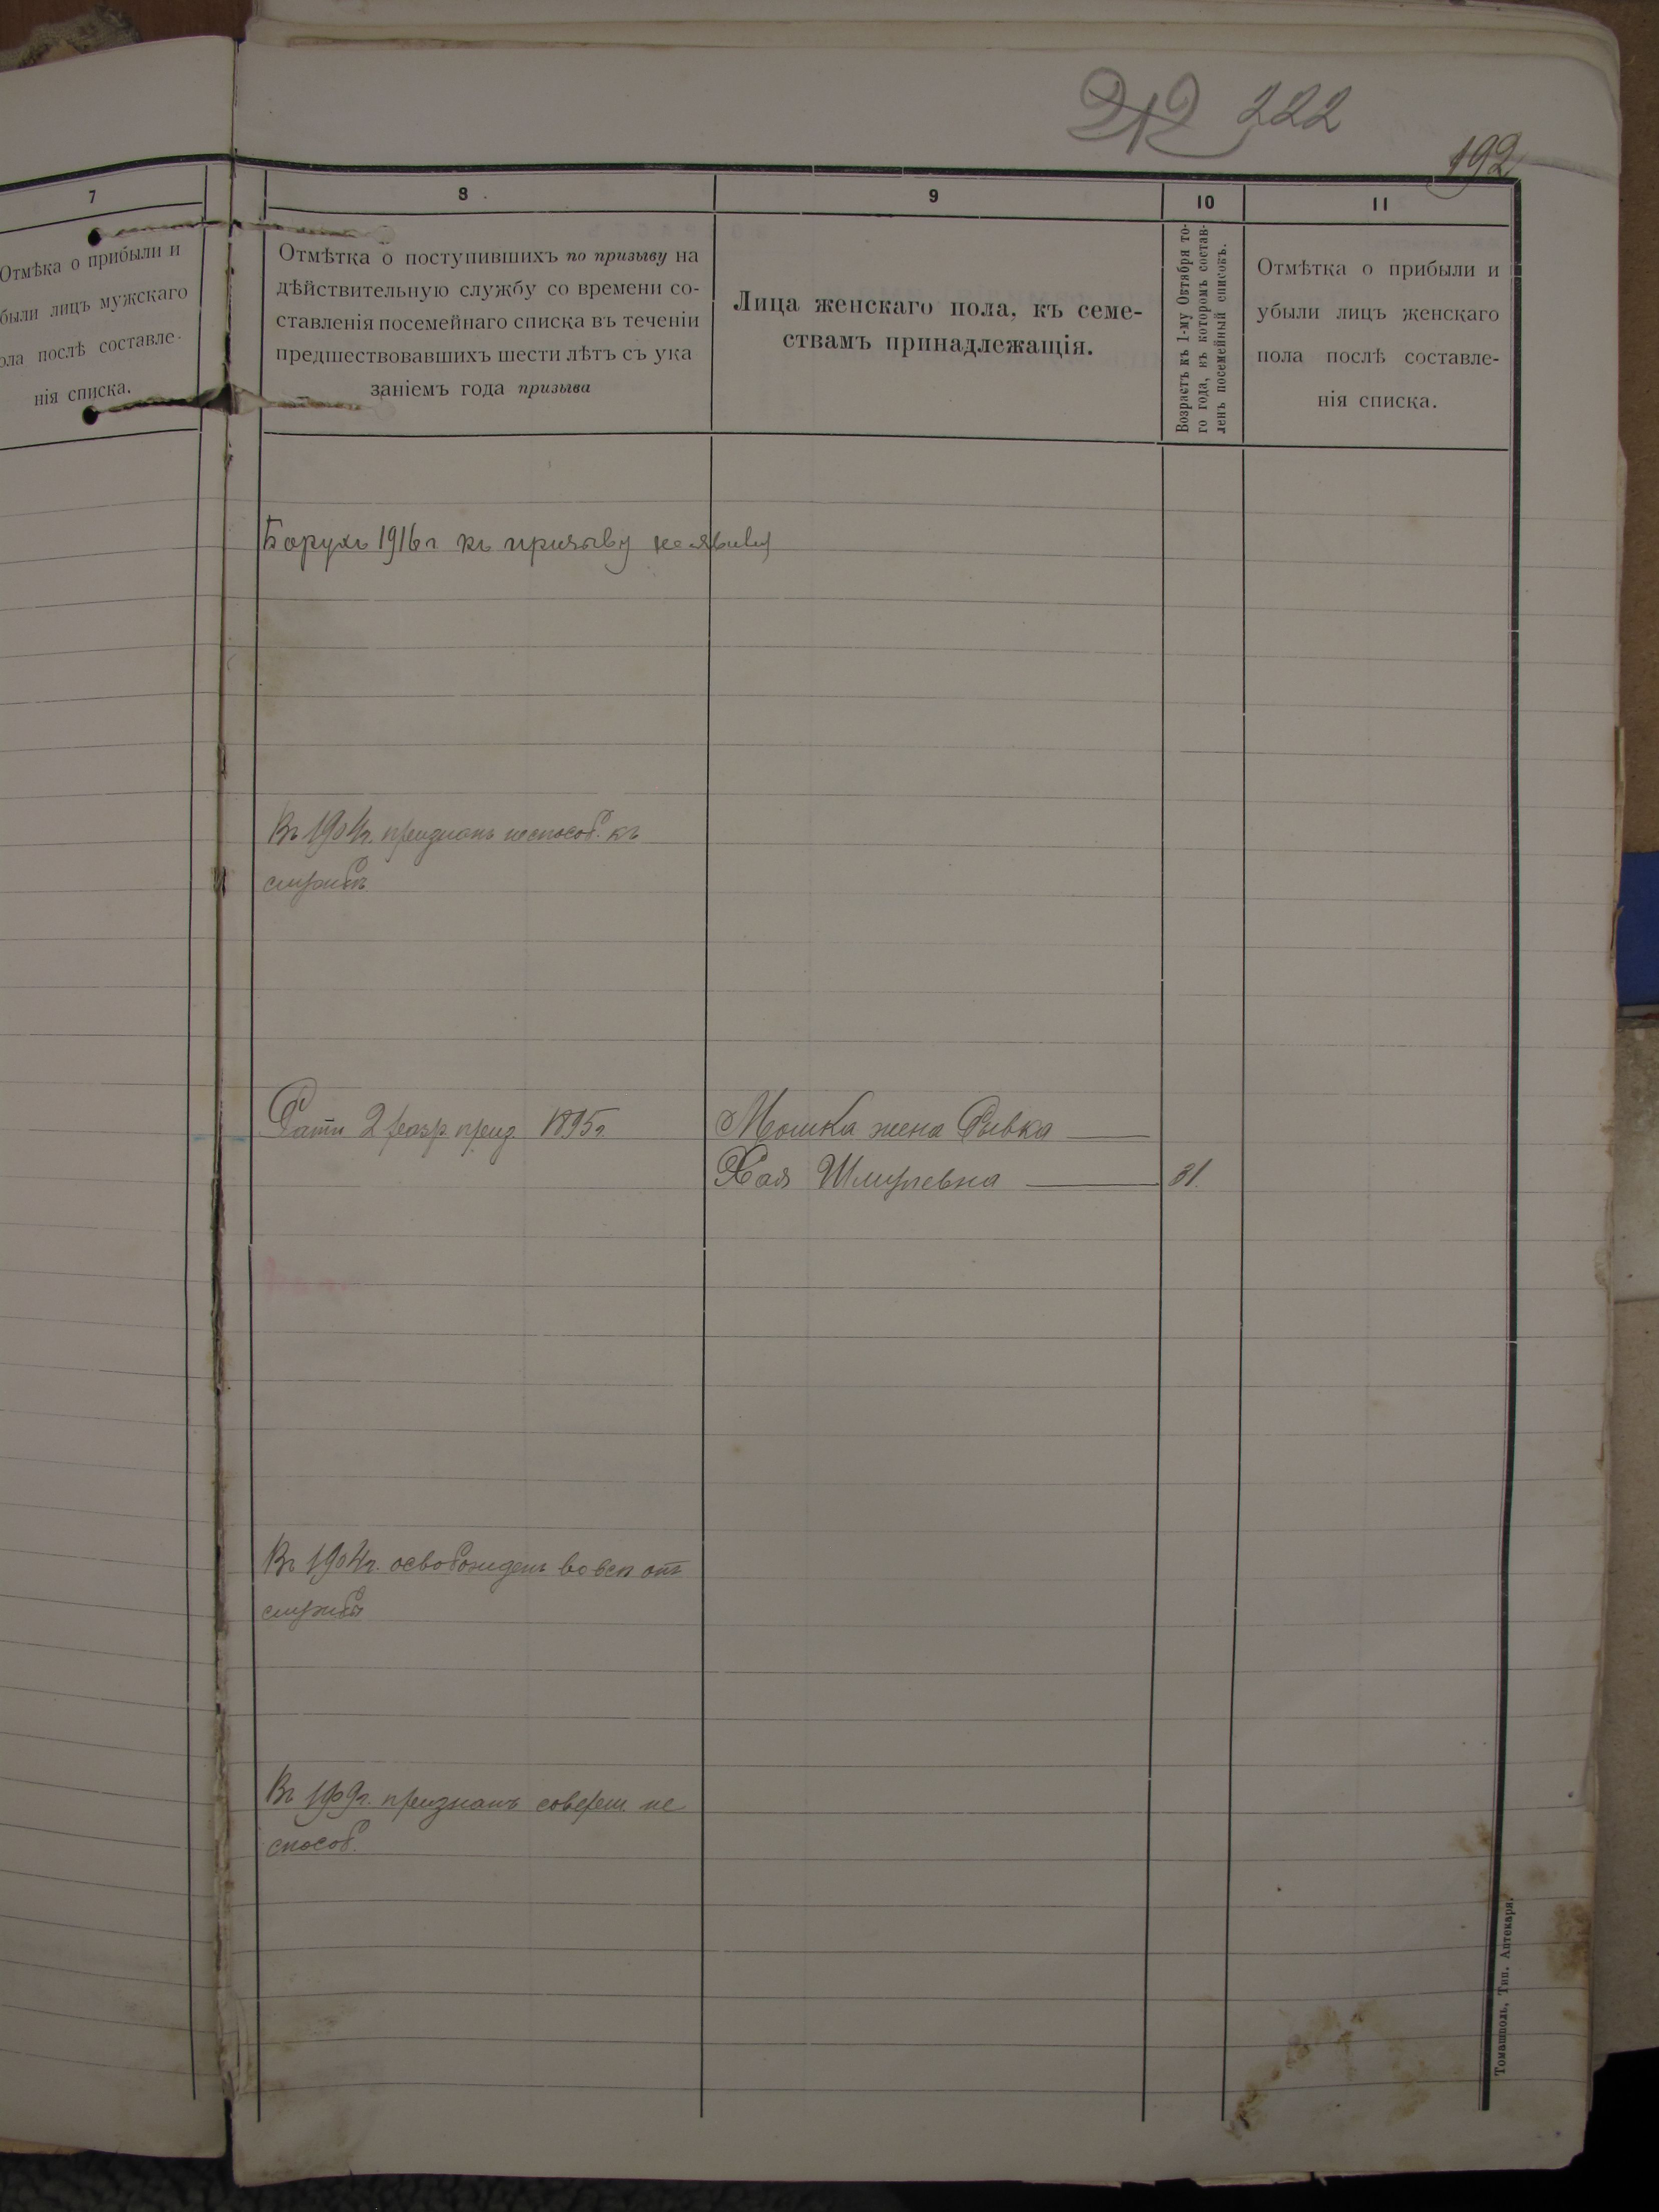 212 222
192
7
Отмѣка о прибыли и
были лицъ мужскаго
ола послѣ составле-
нія списка.
8
Отмѣтка о поступившихъ по призыву на
дѣйствительную службу со времени со-
ставленія посемейнаго списка въ теченіи
предшествовавшихъ шести лѣтъ съ ука
заніемъ года призыва
9
Лица женскаго пола, къ семе-
ствамъ принадлежащія.
10
Возрастъ къ 1-му Октября то-
го года, къ которомъ состав-
ленъ посемейный списокъ.
11
Отмѣтка о прибыли и
убыли лицъ женскаго
пола послѣ составле-
нія списка.
Борухъ 1916 г къ призыву не явився
Въ 1904г. признанъ неспособ. къ
службѣ
Ратн 2 разр. приз. 1895 г.
Мошка жена Рывка
Хая Шмулевна 31.
Въ 1904г. освобожденъ вовсе отъ
службы
Въ 1909г. признанъ соверш. не
способ.
Томашполь, Тип. Аптекаря.